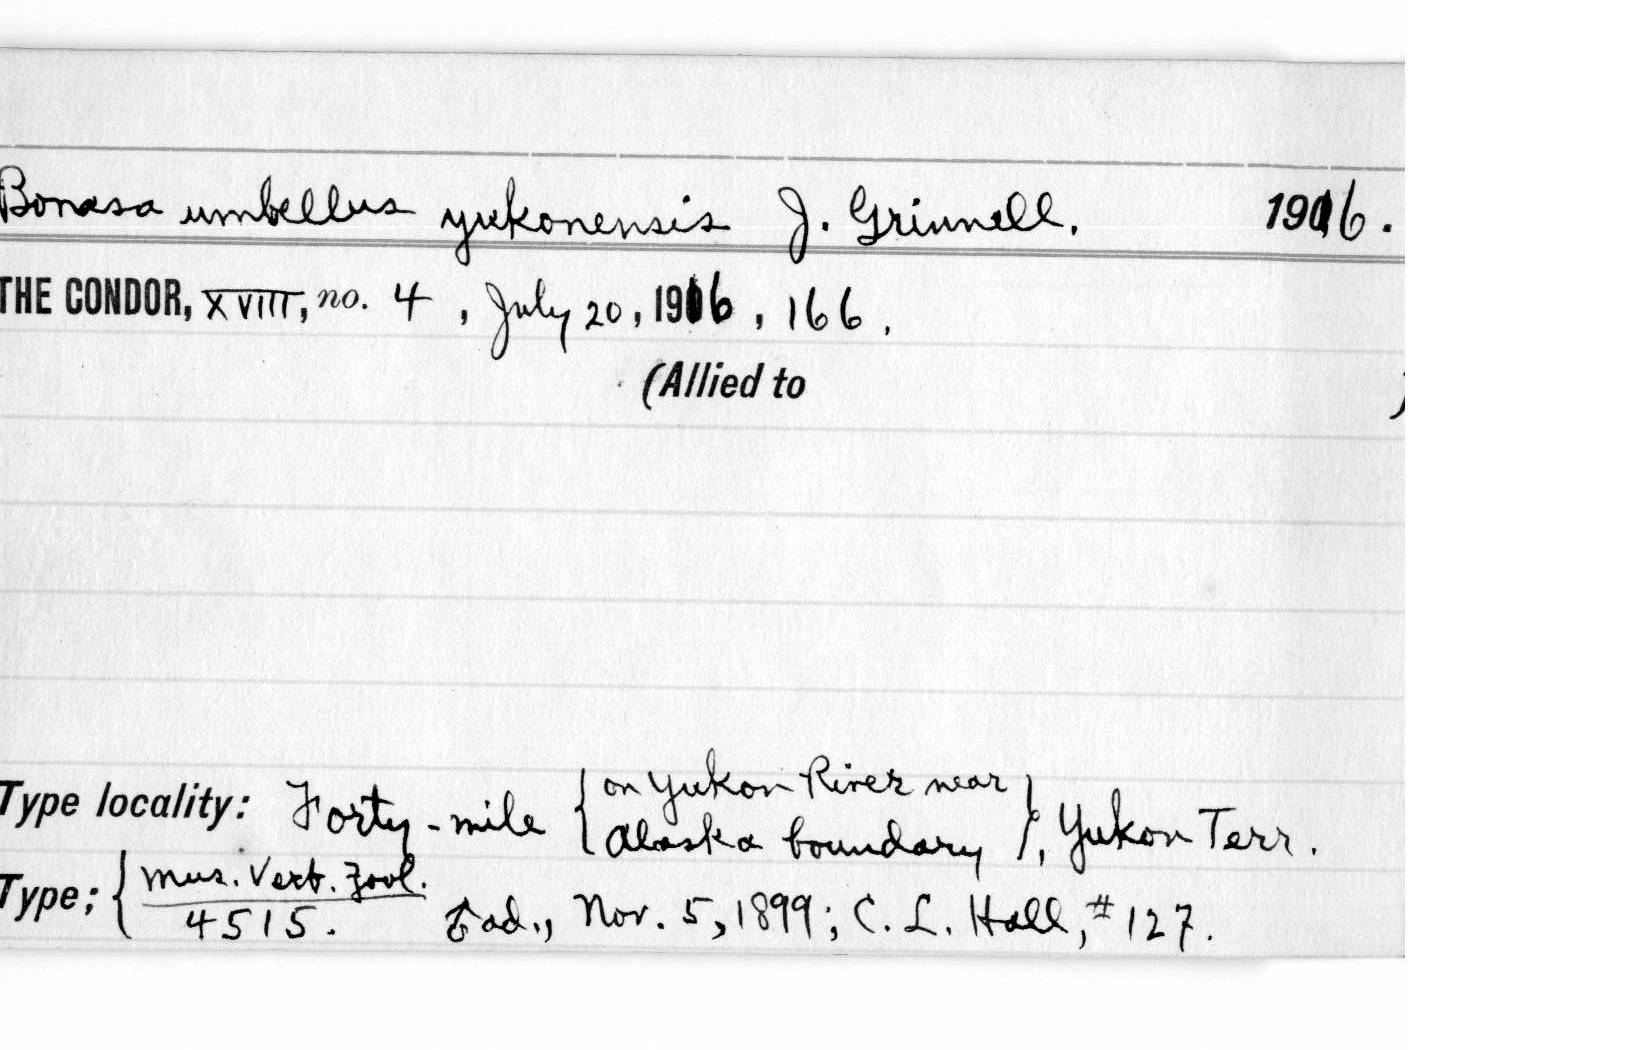 Bonasa umbellus yukonensis J. Grinnell. 1916.
THE CONDOR, XVIII, no. 4, July 20, 1916, 166.
(Allied to )
Type locality: Forty-mile { on Yukon River near Alaska boundary }, Yukon Terr.
Type; { Mus. Vert. Zool. 4515. ad., Nov. 5, 1899; C. L. Hall, #127.